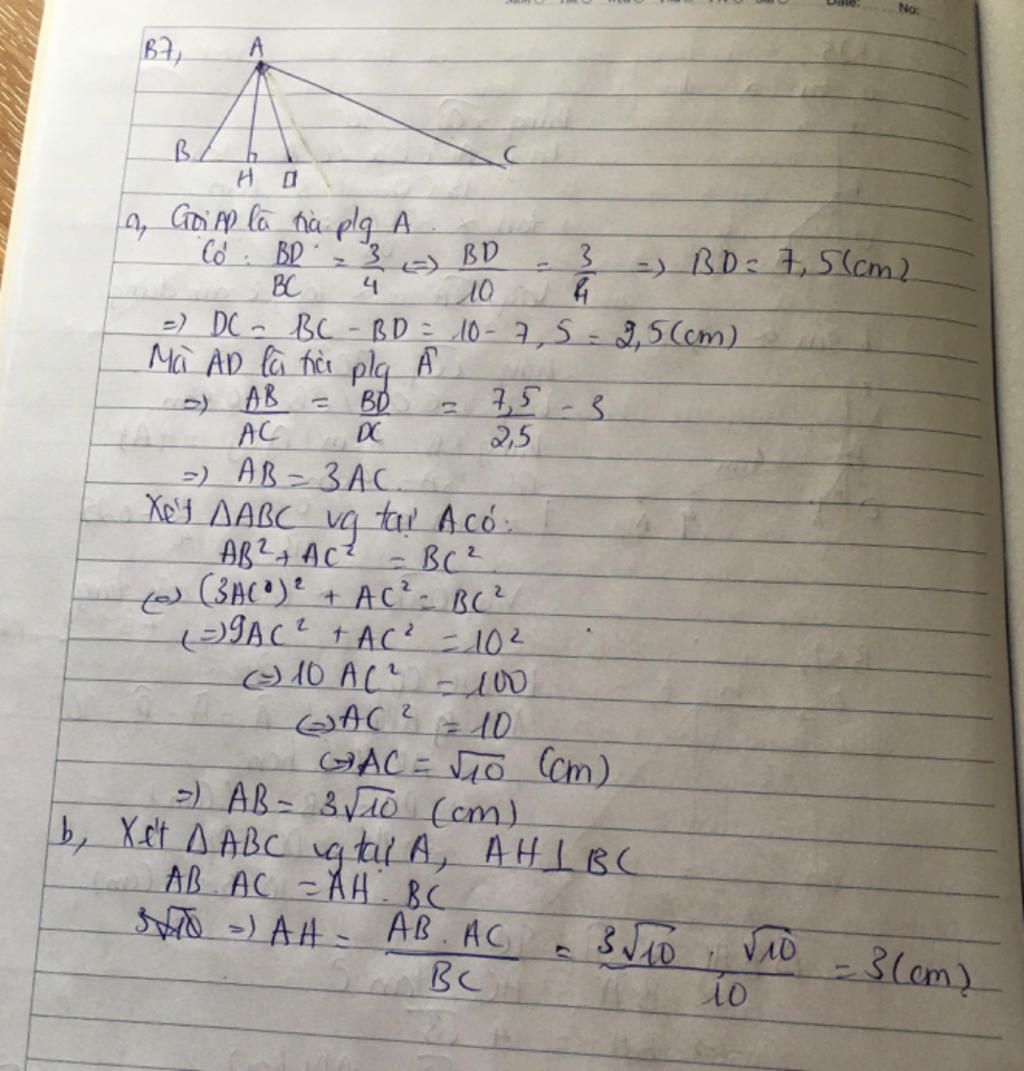 Date: No:
B7,
A
B
C
H D
a, Gọi AD là tia p/g A.
Có: BD/BC = 3/4 <=> BD/10 = 3/4 => BD = 7,5(cm)
=> DC = BC - BD = 10 - 7,5 = 2,5(cm)
Mà AD là tia p/g Â
=> AB/AC = BD/DC = 7,5/2,5 = 3
=> AB = 3AC.
Xét ΔABC vg tại A có:
AB² + AC² = BC²
<=> (3AC)² + AC² = BC²
<=> 9AC² + AC² = 10²
<=> 10 AC² = 100
<=> AC² = 10
<=> AC = √10 (cm)
=> AB = 3√10 (cm)
b, Xét ΔABC vg tại A, AH ⊥ BC
AB . AC = AH . BC
3√10 => AH = AB . AC/BC = 3√10 . √10/10 = 3(cm)